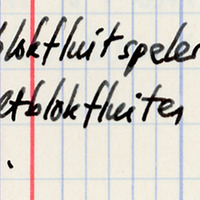 blokfluit speler
etblokfluiten
.